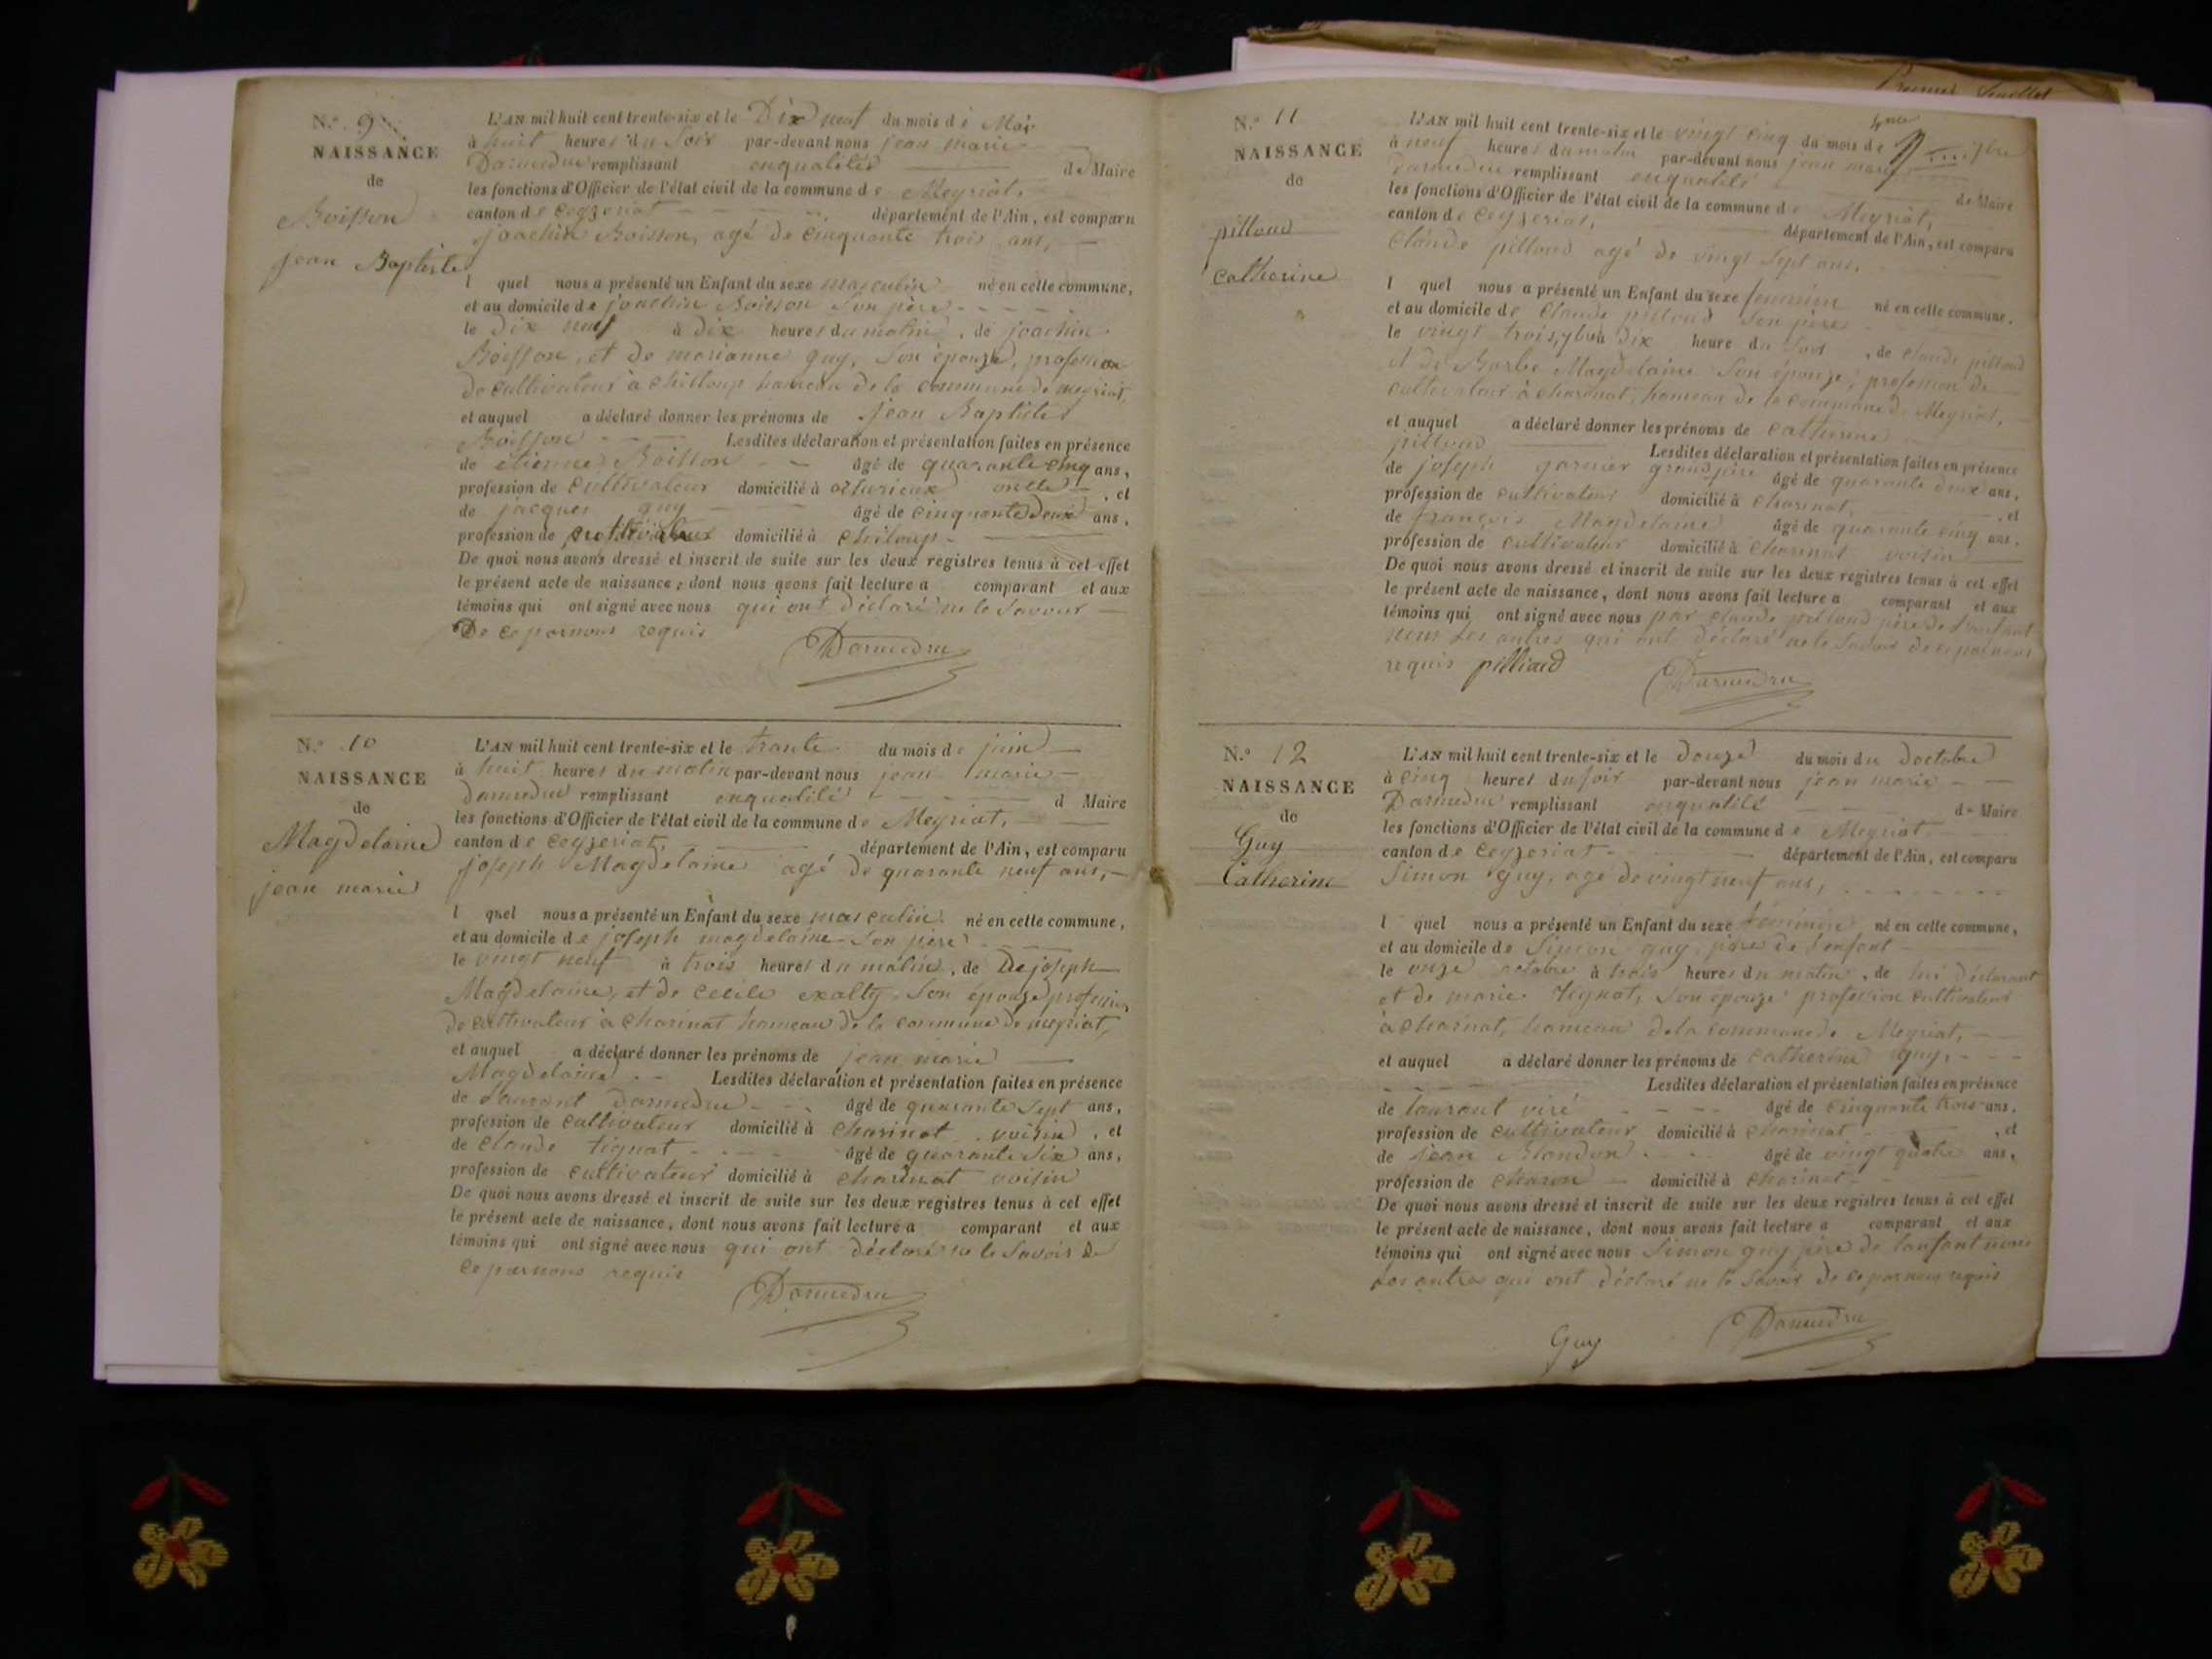 N.o 9
NAISSANCE
de
Boisson
jean Baptiste
L'AN mil huit cent trente-six et le Dix neuf du mois de Mai
à huit heures du Soir par-devant nous jean marie
Darmedru remplissant enqualités de Maire
les fonctions d'Officier de l'état civil de la commune de Meyriat,
canton de Ceyzeriat département de l'Ain, est comparu
joachin Boisson, agé de Cinquante trois ans,
l quel nous a présenté un Enfant du sexe masculin né en cette commune,
et au domicile de joachin Boisson Son père
le Dix neuf à Dix heures du matin, de joachin
Boisson, et de marianne guy, Son épouze, profession
de cultivateur à Chilloup hameau de la commune de meyriat,
et auquel a déclaré donner les prénoms de jean Baptiste
Boisson Lesdites déclaration et présentation faites en présence
de etienne Boisson âgé de quarante cinq ans,
profession de cultivateur domicilié à oncle, et
de jacques guy âgé de cinquante deux ans,
profession de cultivateur domicilié à Chiloup
De quoi nous avons dressé et inscrit de suite sur les deux registres tenus à cet effet
le présent acte de naissance, dont nous avons fait lecture a comparant et aux
témoins qui ont signé avec nous qui ont déclaré ne le Savoir
De ce par nous requis
Darmedru
N.o 10
NAISSANCE
de
Magdelaine
jean marie
L'AN mil huit cent trente-six et le trante du mois de juin
à huit heures du matin par-devant nous jean marie
Darmedru remplissant enqualité d Maire
les fonctions d'Officier de l'état civil de la commune de Meyriat,
canton de Ceyzeriat, département de l'Ain, est comparu
joseph Magdelaine agé de quarante neuf ans,
l quel nous a présenté un Enfant du sexe masculin né en cette commune,
et au domicile de joseph magdelaine Son père
le vingt neuf à trois heures du matin, de De joseph
Magdelaine, et de Cecile exalty Son épouze profession
de cultivateur à Charinat hameau de la commune de meyriat,
et auquel a déclaré donner les prénoms de jean marie
Magdelaine Lesdites déclaration et présentation faites en présence
de Laurant Darmedru âgé de quarante Sept ans,
profession de cultivateur domicilié à Charinat voisin, et
de Claude tignat âgé de quarante Six ans,
profession de cultivateur domicilié à Charinat voisin
De quoi nous avons dressé et inscrit de suite sur les deux registres tenus à cet effet
le présent acte de naissance, dont nous avons fait lecture a comparant et aux
témoins qui ont signé avec nous qui ont déclaré ne le Savoir de
ce par nous requis
Darmedru
N.o 11
NAISSANCE
de
pilloud
Catherine
L'AN mil huit cent trente-six et le vingt cinq du mois de 7bre
à neuf heures du matin par-devant nous jean marie
Darmedru remplissant enqualité de Maire
les fonctions d'Officier de l'état civil de la commune de Meyriat,
canton de Ceyzeriat, département de l'Ain, est comparu
Claude pilloud agé de vingt Sept ans,
l quel nous a présenté un Enfant du sexe feminin né en cette commune,
et au domicile de Claude pilloud Son père
le vingt trois 7bre à Dix heure du Soir, de Claude pilloud
et de Barbe Magdelaine Son épouze, profession de
cultivateur à Charinat, hameau de la commune de Meyriat,
et auquel a déclaré donner les prénoms de Catherine
pilloud Lesdites déclaration et présentation faites en présence
de joseph garnier grand père âgé de quarante deux ans,
profession de cultivateur domicilié à Charinat, et
de françois Magdelaine âgé de quarante cinq ans,
profession de cultivateur domicilié à Charinat voisin
De quoi nous avons dressé et inscrit de suite sur les deux registres tenus à cet effet
le présent acte de naissance, dont nous avons fait lecture a comparant et aux
témoins qui ont signé avec nous par Claude pilloud père de l'enfant
nons Les autres qui ont déclaré ne le Savoir de ce par nous
requis pilliaud
Darmedru
N.o 12
NAISSANCE
de
Guy
Catherine
L'AN mil huit cent trente-six et le Douze du mois du Doctobre
à Cinq heures du Soir par-devant nous jean marie
Darmedru remplissant enqualité de Maire
les fonctions d'Officier de l'état civil de la commune de Meyriat
canton de Ceyzeriat département de l'Ain, est comparu
Simon guy, agé de vingt neuf ans,
l quel nous a présenté un Enfant du sexe féminin né en cette commune,
et au domicile de Simon guy, père de l'enfant
le onze octobre à trois heures du matin, de lui Déclarant
et de marie tignat, Son épouze profession cultivateur
à Charinat, hameau de la commune de Meyriat,
et auquel a déclaré donner les prénoms de Catherine guy,
Lesdites déclaration et présentation faites en présence
de Laurant viré âgé de Cinquante trois ans,
profession de cultivateur domicilié à Charinat, et
de jean Blandon âgé de vingt quatre ans,
profession de Charon domicilié à Charinat
De quoi nous avons dressé et inscrit de suite sur les deux registres tenus à cet effet
le présent acte de naissance, dont nous avons fait lecture a comparant et aux
témoins qui ont signé avec nous Simon guy père de lanfant nons
Les autres qui ont déclaré ne le Savoir de ce par nous requis
Guy
Darmedru